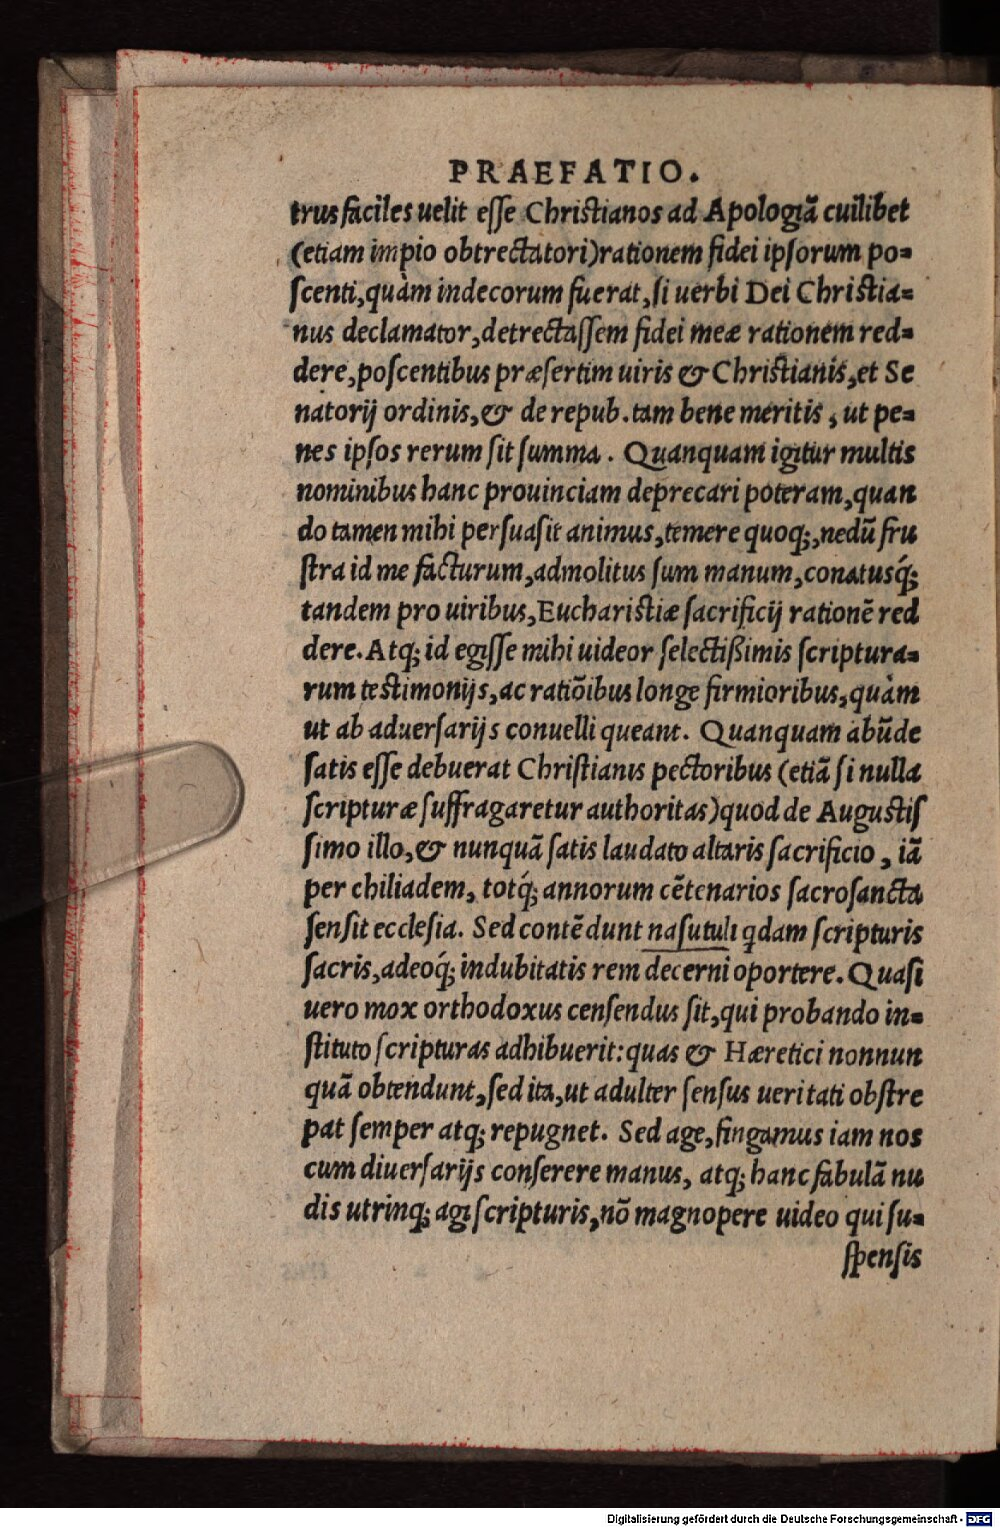 PRAEFATIO.
trus faciles uelit eſſe Chriſtianos ad Apologiã cuilibet
(etiam impio obtrectatori)rationem fidei ipſorum po=
ſcenti,quàm indecorum fuerat,ſi uerbi Dei Chriſtia=
nus declamator,detrectaſſem fidei meæ rationem red=
dere,poſcentibus præſertim uiris & Chriſtianis,et Se
natorij ordinis,& de repub.tam bene meritis, ut pe=
nes ipſos rerum ſit ſumma. Quanquam igitur multis
nominibus hanc prouinciam deprecari poteram,quan
do tamen mihi perſuaſit animus,temere quoq;,nedũ fru
ſtra id me facturum,admolitus ſum manum,conatusq́;
tandem pro uiribus,Euchariſtiæ ſacrificij rationẽ red
dere.Atq; id egiſſe mihi uideor ſelectißimis ſcriptura=
rum teſtimonijs,ac ratiõibus longe firmioribus,quàm
ut ab aduerſarijs conuelli queant. Quanquam abũde
ſatis eſſe debuerat Chriſtianis pectoribus (etiã ſi nulla
ſcripturæ ſuffragaretur authoritas)quod de Auguſtiſ
ſimo illo,& nunquã ſatis laudato altaris ſacrificio, iã
per chiliadem, totq́; annorum cẽtenarios ſacroſancta
ſenſit eccleſia. Sed contẽdunt naſutuli q̃dam ſcripturis
ſacris,adeoq́; indubitatis rem decerni oportere. Quaſi
uero mox orthodoxus cenſendus ſit,qui probando in=
ſtituto ſcripturas adhibuerit:quas & Hæretici nonnun
quã obtendunt,ſed ita,ut adulter ſenſus ueritati obſtre
pat ſemper atq; repugnet. Sed age,fingamus iam nos
cum diuerſarijs conſerere manus, atq; hanc fabulã nu
dis utrinq; agi ſcripturis,nõ magnopere uideo qui ſu=
ſpenſis
Digitalisierung gefördert durch die Deutsche Forschungsgemeinschaft - DFG